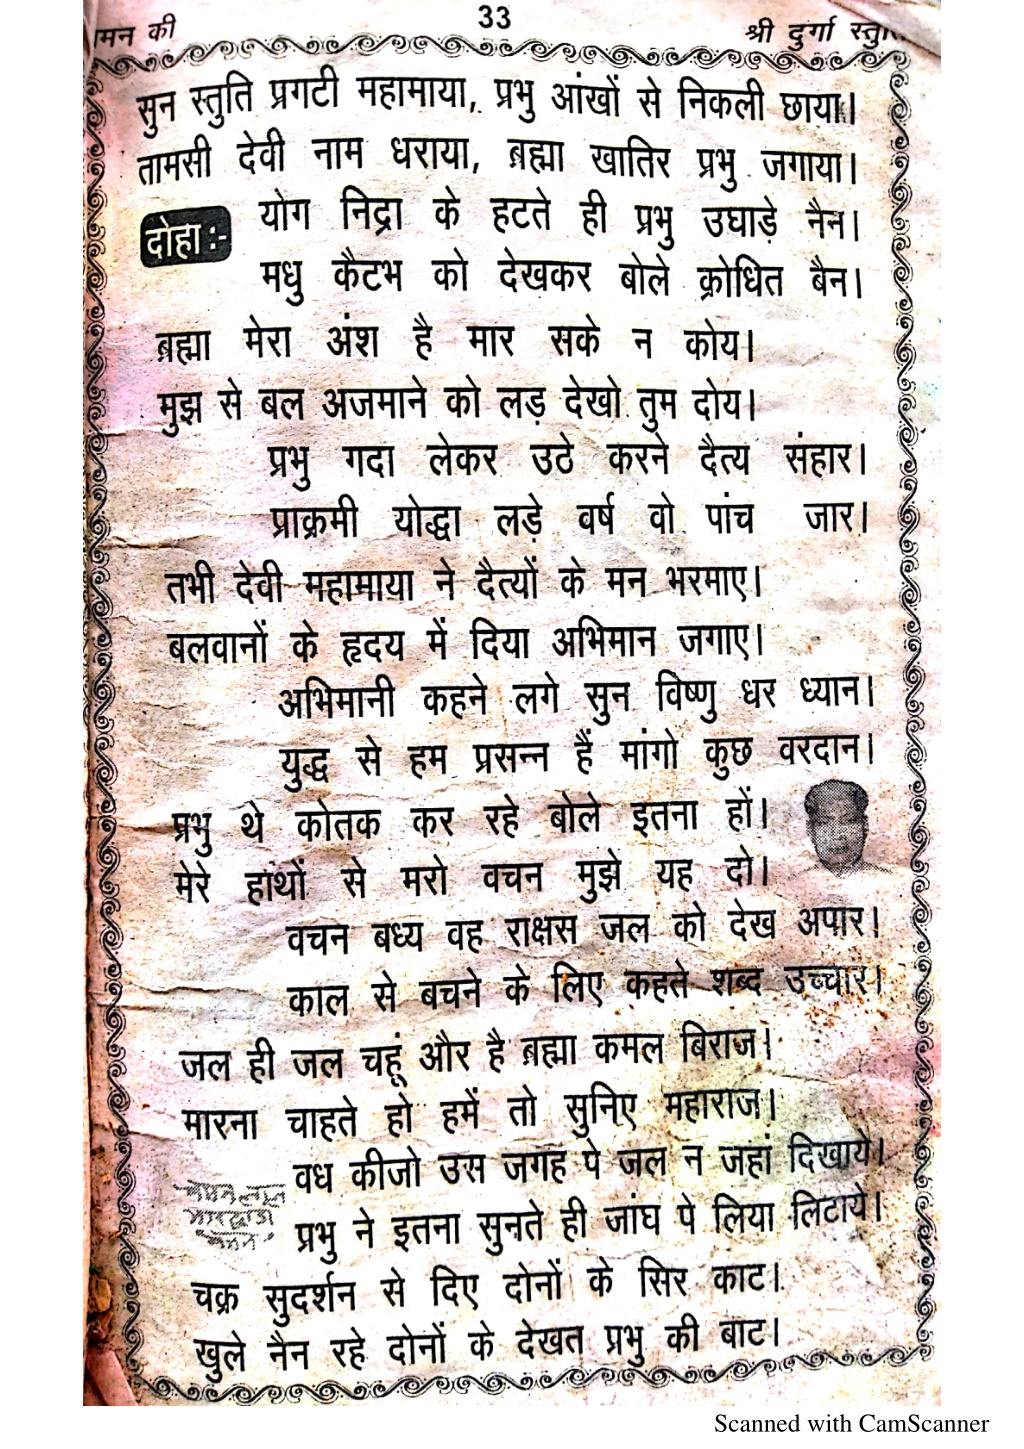 33
मन की
श्री दुर्गा
सुन स्तुति प्रगटी महामाया, प्रभु आंखों से निकली छाया।
तामसी देवी नाम धराया, ब्रह्मा खातिर प्रभु जगाया।
दोहा :- योग निद्रा के हटते ही प्रभु उघाड़े नैन।
मधु कैटभ को देखकर बोले क्रोधित बैन।
ब्रह्मा मेरा अंश है मार सके न कोय।
मुझ से बल अजमाने को लड़ देखो तुम दोय।
प्रभु गदा लेकर उठे करने दैत्य संहार।
प्राक्रमी योद्धा लड़े वर्ष वो पांच जार।
तभी देवी महामाया ने दैत्यों के मन भरमाए।
बलवानों के हृदय में दिया अभिमान जगाए।
अभिमानी कहने लगे सुन विष्णु धर ध्यान।
युद्ध से हम प्रसन्न हैं मांगो कुछ वरदान।
प्रभु थे कोतक कर रहे बोले इतना हों।
मेरे हाथों से मरो वचन मुझे यह दो।
वचन बध्य वह राक्षस जल को देख अपार।
काल से बचने के लिए कहते शब्द उच्चार।
जल ही जल चहूं और है ब्रह्मा कमल बिराज।
मारना चाहते हो हमें तो सुनिए महाराज।
वध कीजो उस जगह पे जल न जहां दिखाये।
प्रभु ने इतना सुनते ही जांघ पे लिया लिटाये।
चक्र सुदर्शन से दिए दोनों के सिर काट।
खुले नैन रहे दोनों के देखत प्रभु की बाट।
Scanned with CamScanner